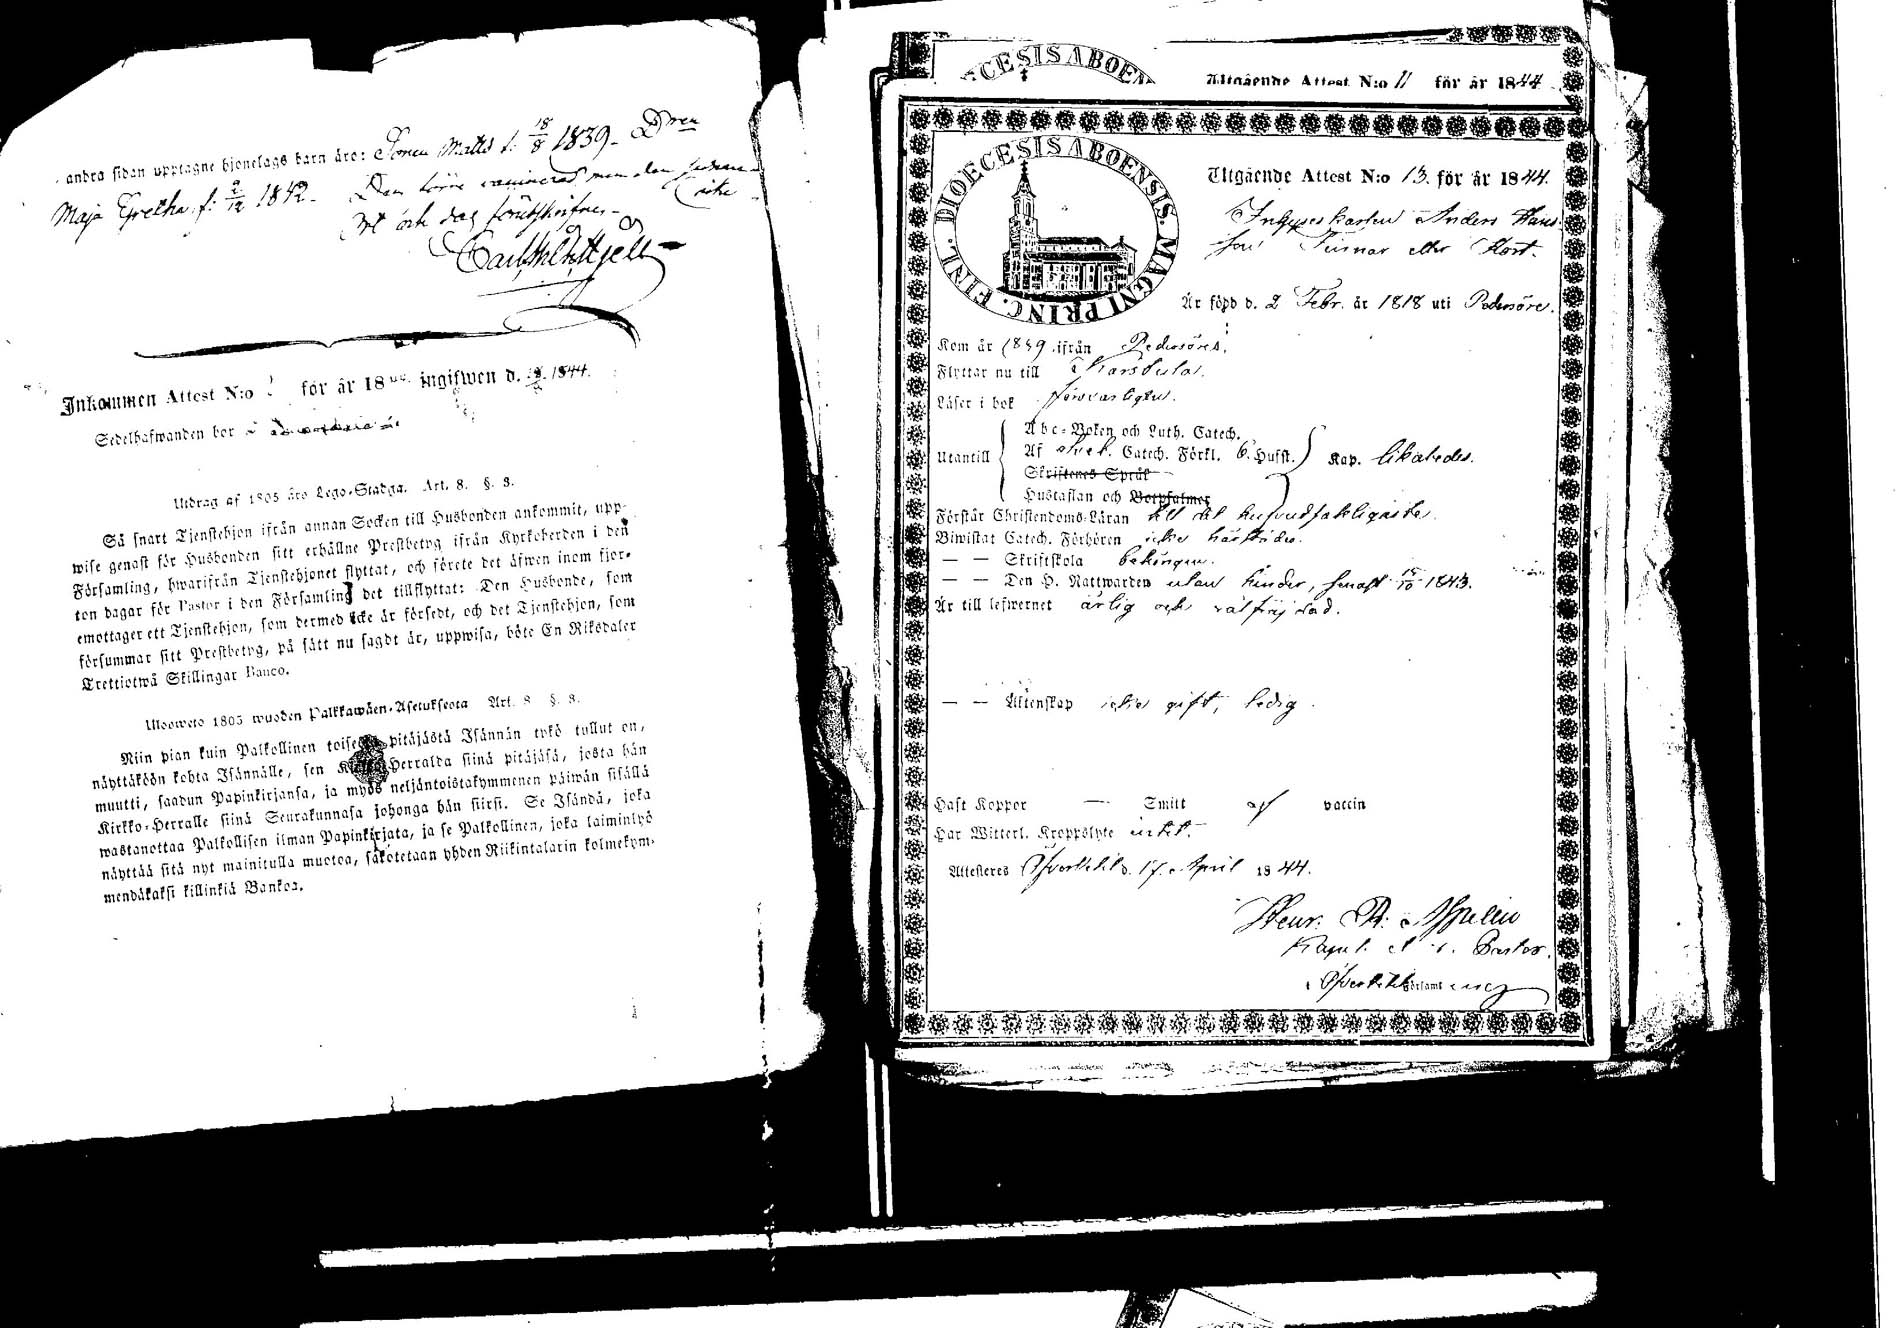 andra sidan upptagne hjonelags barn äro: Sonen Matts f. 18/8 1839 - Dren
Maja Gretha f: 2/12 1842 -
Den
men den
icke
och dag
Inkommen Attest N:o för år 18 ingifwen d. 1844.
Sedelhafwanden bor
Utdrag af 1805 års Lego-Stadga. Art. 8. §. 3.
Så snart Tjenstehjon ifrån annan Socken till Husbonden ankommit, upp-
wise genast för Husbonden sitt erhållne Prestbetyg ifrån Kyrkoherden i den
Församling, hwarifrån Tjenstehjonet flyttat, och förete det äfwen inom fjor-
ton dagar för Pastor i den Församling det tillflyttat: Den Husbonde, som
emottager ett Tjenstehjon, som dermed icke är försedt, och det Tjenstehjon, som
försummar sitt Prestbetyg, på sätt nu sagdt är, uppwisa, böte En Riksdaler
Trettiotwå Skillingar Banco.
Ulosweto 1805 wuoden Palkkawäen-Asetuksesta Art. 8 §. 3.
Niin pian kuin Palkollinen toisesta pitäjästä Isännän tykö tullut on,
näyttäköön kohta Isännälle, sen Kirkko-Herralda siinä pitäjäsä, josta hän
muutti, saadun Papinkirjansa, ja myös neljäntoistakymmenen päiwän sisällä
Kirkko-Herralle siinä Seurakunnasa johonga hän siirsi. Se Isändä, joka
wastanottaa Palkollisen ilman Papinkirjata, ja se Palkollinen, joka laiminlyö
näyttää sitä nyt mainitulla muotoa, sakotetaan yhden Riikintalarin kolmekym-
mendäkaksi killinkiä Bankoa.
CESIS ABOEN
Utgående Attest N:o 11 för år 1844
FINL. DIOECESIS ABOENSIS. MAGNI PRINC.
Utgående Attest N:o 13. för år 1844.
Inhyseskarlen Anders Hans-
son eller Kort.
Är född d. 2 Febr. år 1818 uti Pedersöre.
Kom år 1839 ifrån Pedersöre.
Flyttar nu till Karstula.
Läser i bok försvarligen.
Abc-Boken och Luth. Catech.
Utantill Af Sveb. Catech. Förkl. 6. Hufst. Kap. likaledes.
Skriftenes Språk
Hustaflan och Botpsalmer
Förstår Christendoms-Läran till det hufvudsakligaste.
Biwistat Catech. Förhören icke härstädes.
— — Skriftskola behörigen.
— — Den H. Nattwarden utan hinder, senast 15/10 1843.
Är till lefwernet ärlig och välfräjdad.
— — Äktenskap icke gift, ledig.
Haft Koppor — Smitt af vaccin
Har Witterl. Kroppslyte intet.
Attesteres Öfvertilt d. 17. April 1844.
Henr. R. Aspelin
Kapel. Pastor.
i Församl